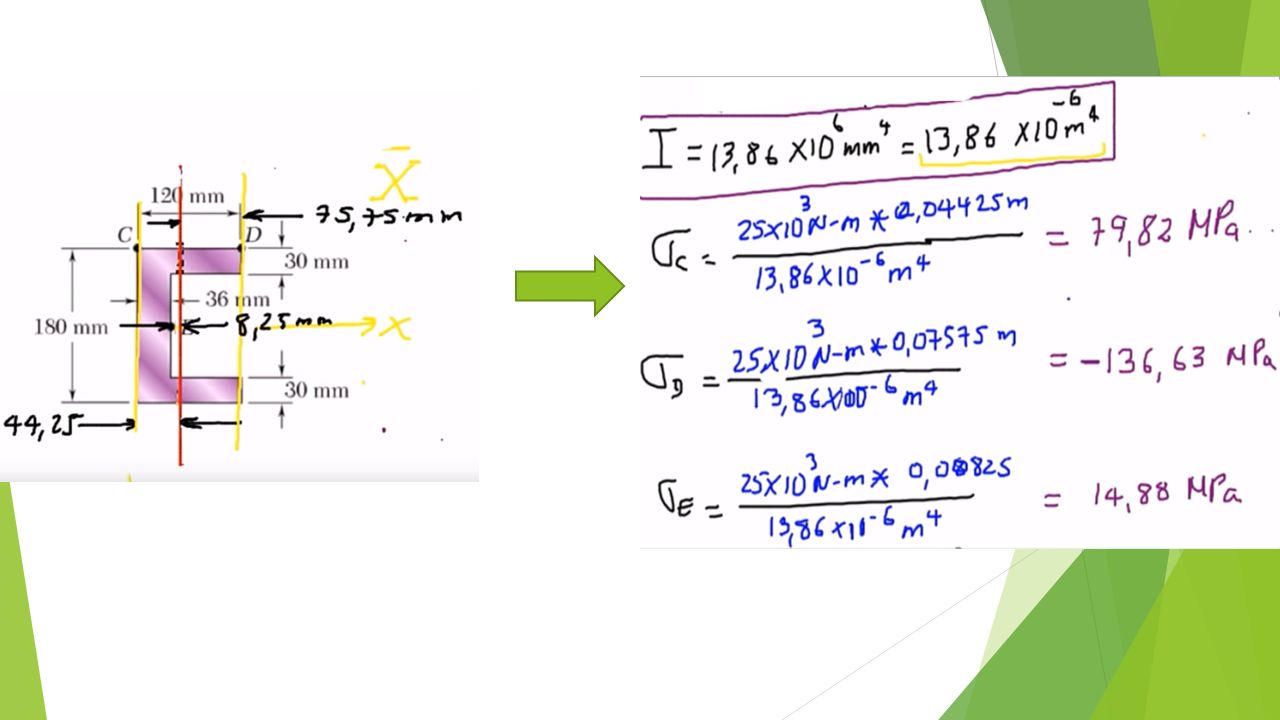 X̄
120 mm
75,75 mm
C
D
30 mm
36 mm
180 mm
8,25 mm
X
30 mm
44,25
I = 13,86 X10⁶ mm⁴ = 13,86 X10⁻⁶ m⁴
σC = 25X10³ N-m * 0,04425 m / 13,86X10⁻⁶ m⁴ = 79,82 MPa
σD = − 25X10³ N-m * 0,07575 m / 13,86X10⁻⁶ m⁴ = -136,63 MPa
σE = 25X10³ N-m * 0,00825 / 13,86X10⁻⁶ m⁴ = 14,88 MPa